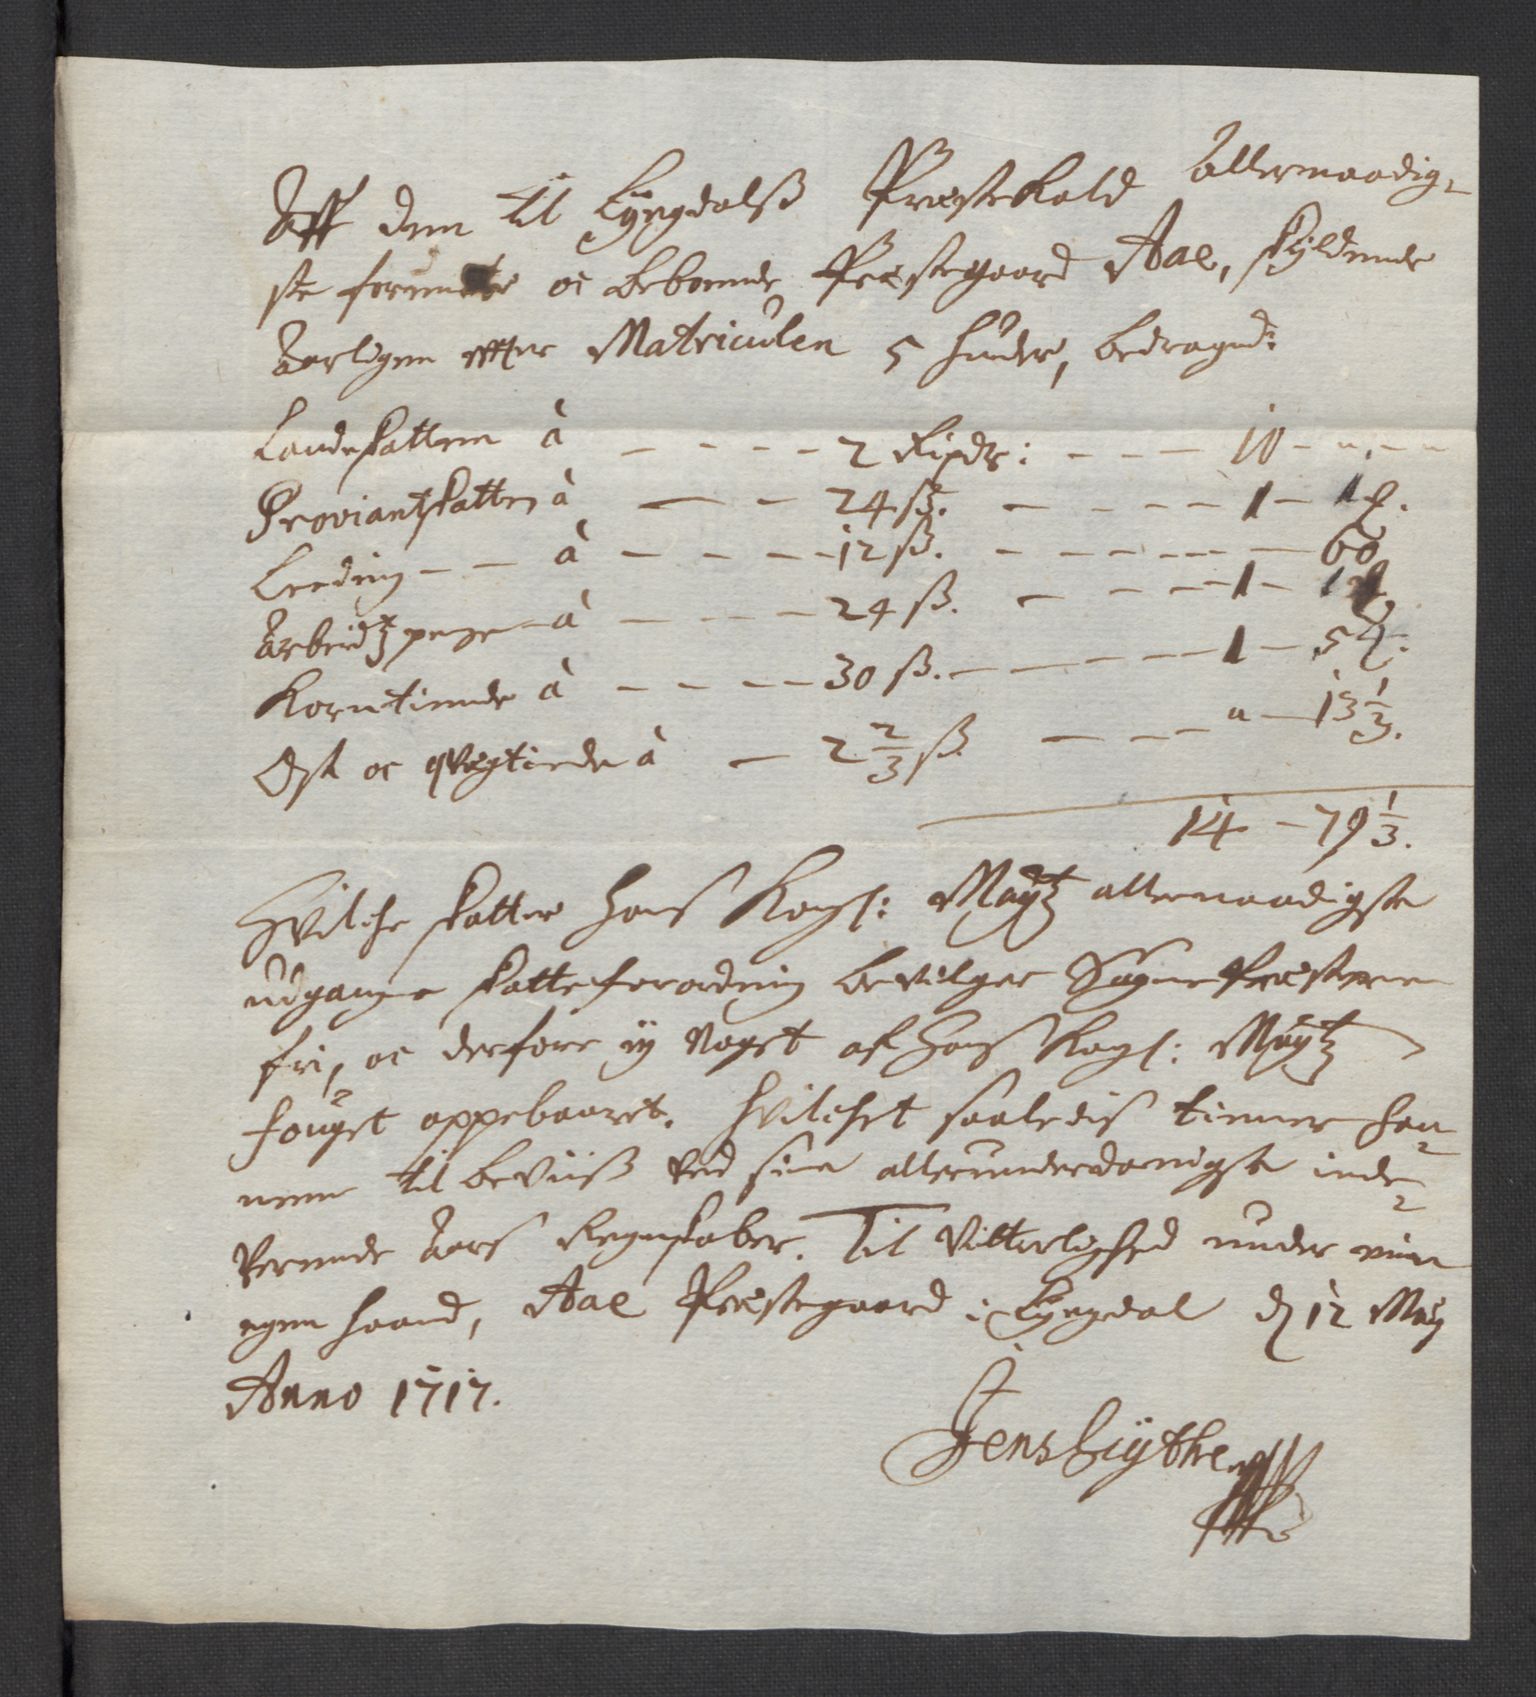 Aff dem til Lÿngdals Præstekald allernaadig-
ste forundte oc beboende Præstegaard Aae, skÿldende
Aarligen effter Matriculen 5 huder, bedragend:
Landskatten à - - - - 2 Rixdr: - - - 10 - " - "
Proviantskatten à - - 24 ß. - - - - 1 - 1 ort.
Leeding - - à - - - - 12 ß. - - - - - - 60
Arbeidz penge - à - - - 24 ß. - - - - 1 - 1 ort.
Korntiende à - - - - 30 ß. - - - - 1 - 54.
Ost oc qvægtiende à - 2 2/3 ß - - - " - 13 1/3.
14 - 79 1/3.
Hvilche skatter hans Kongl: Maÿtz allernaadigste
udgangne skatteforordning bevilger Sogne Præsterne
fri, oc derfore ej noget af hans Kongl: Maÿtz
fouget oppebaaret. hvilchet saaledis tiener han-
nem til beviiß ved sine allerunderdanigste inde-
verende Aars Regnskaber. Til Vitterlighed under min
egen haand, Aae Præstegaard i Lÿngdal d 12 Maÿ
Anno 1717.
Jens